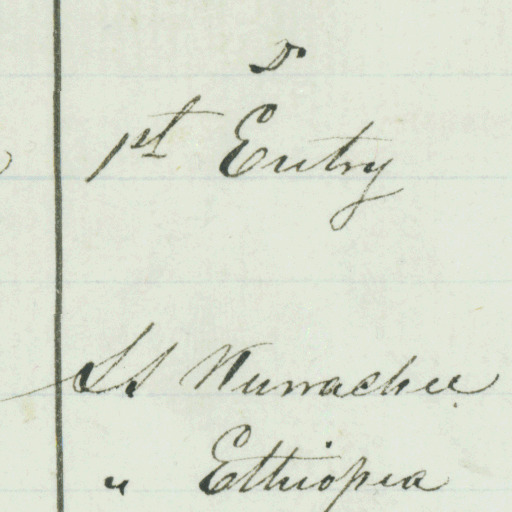 Do
1st Entry
SS Wurrachee
" Ethiopia